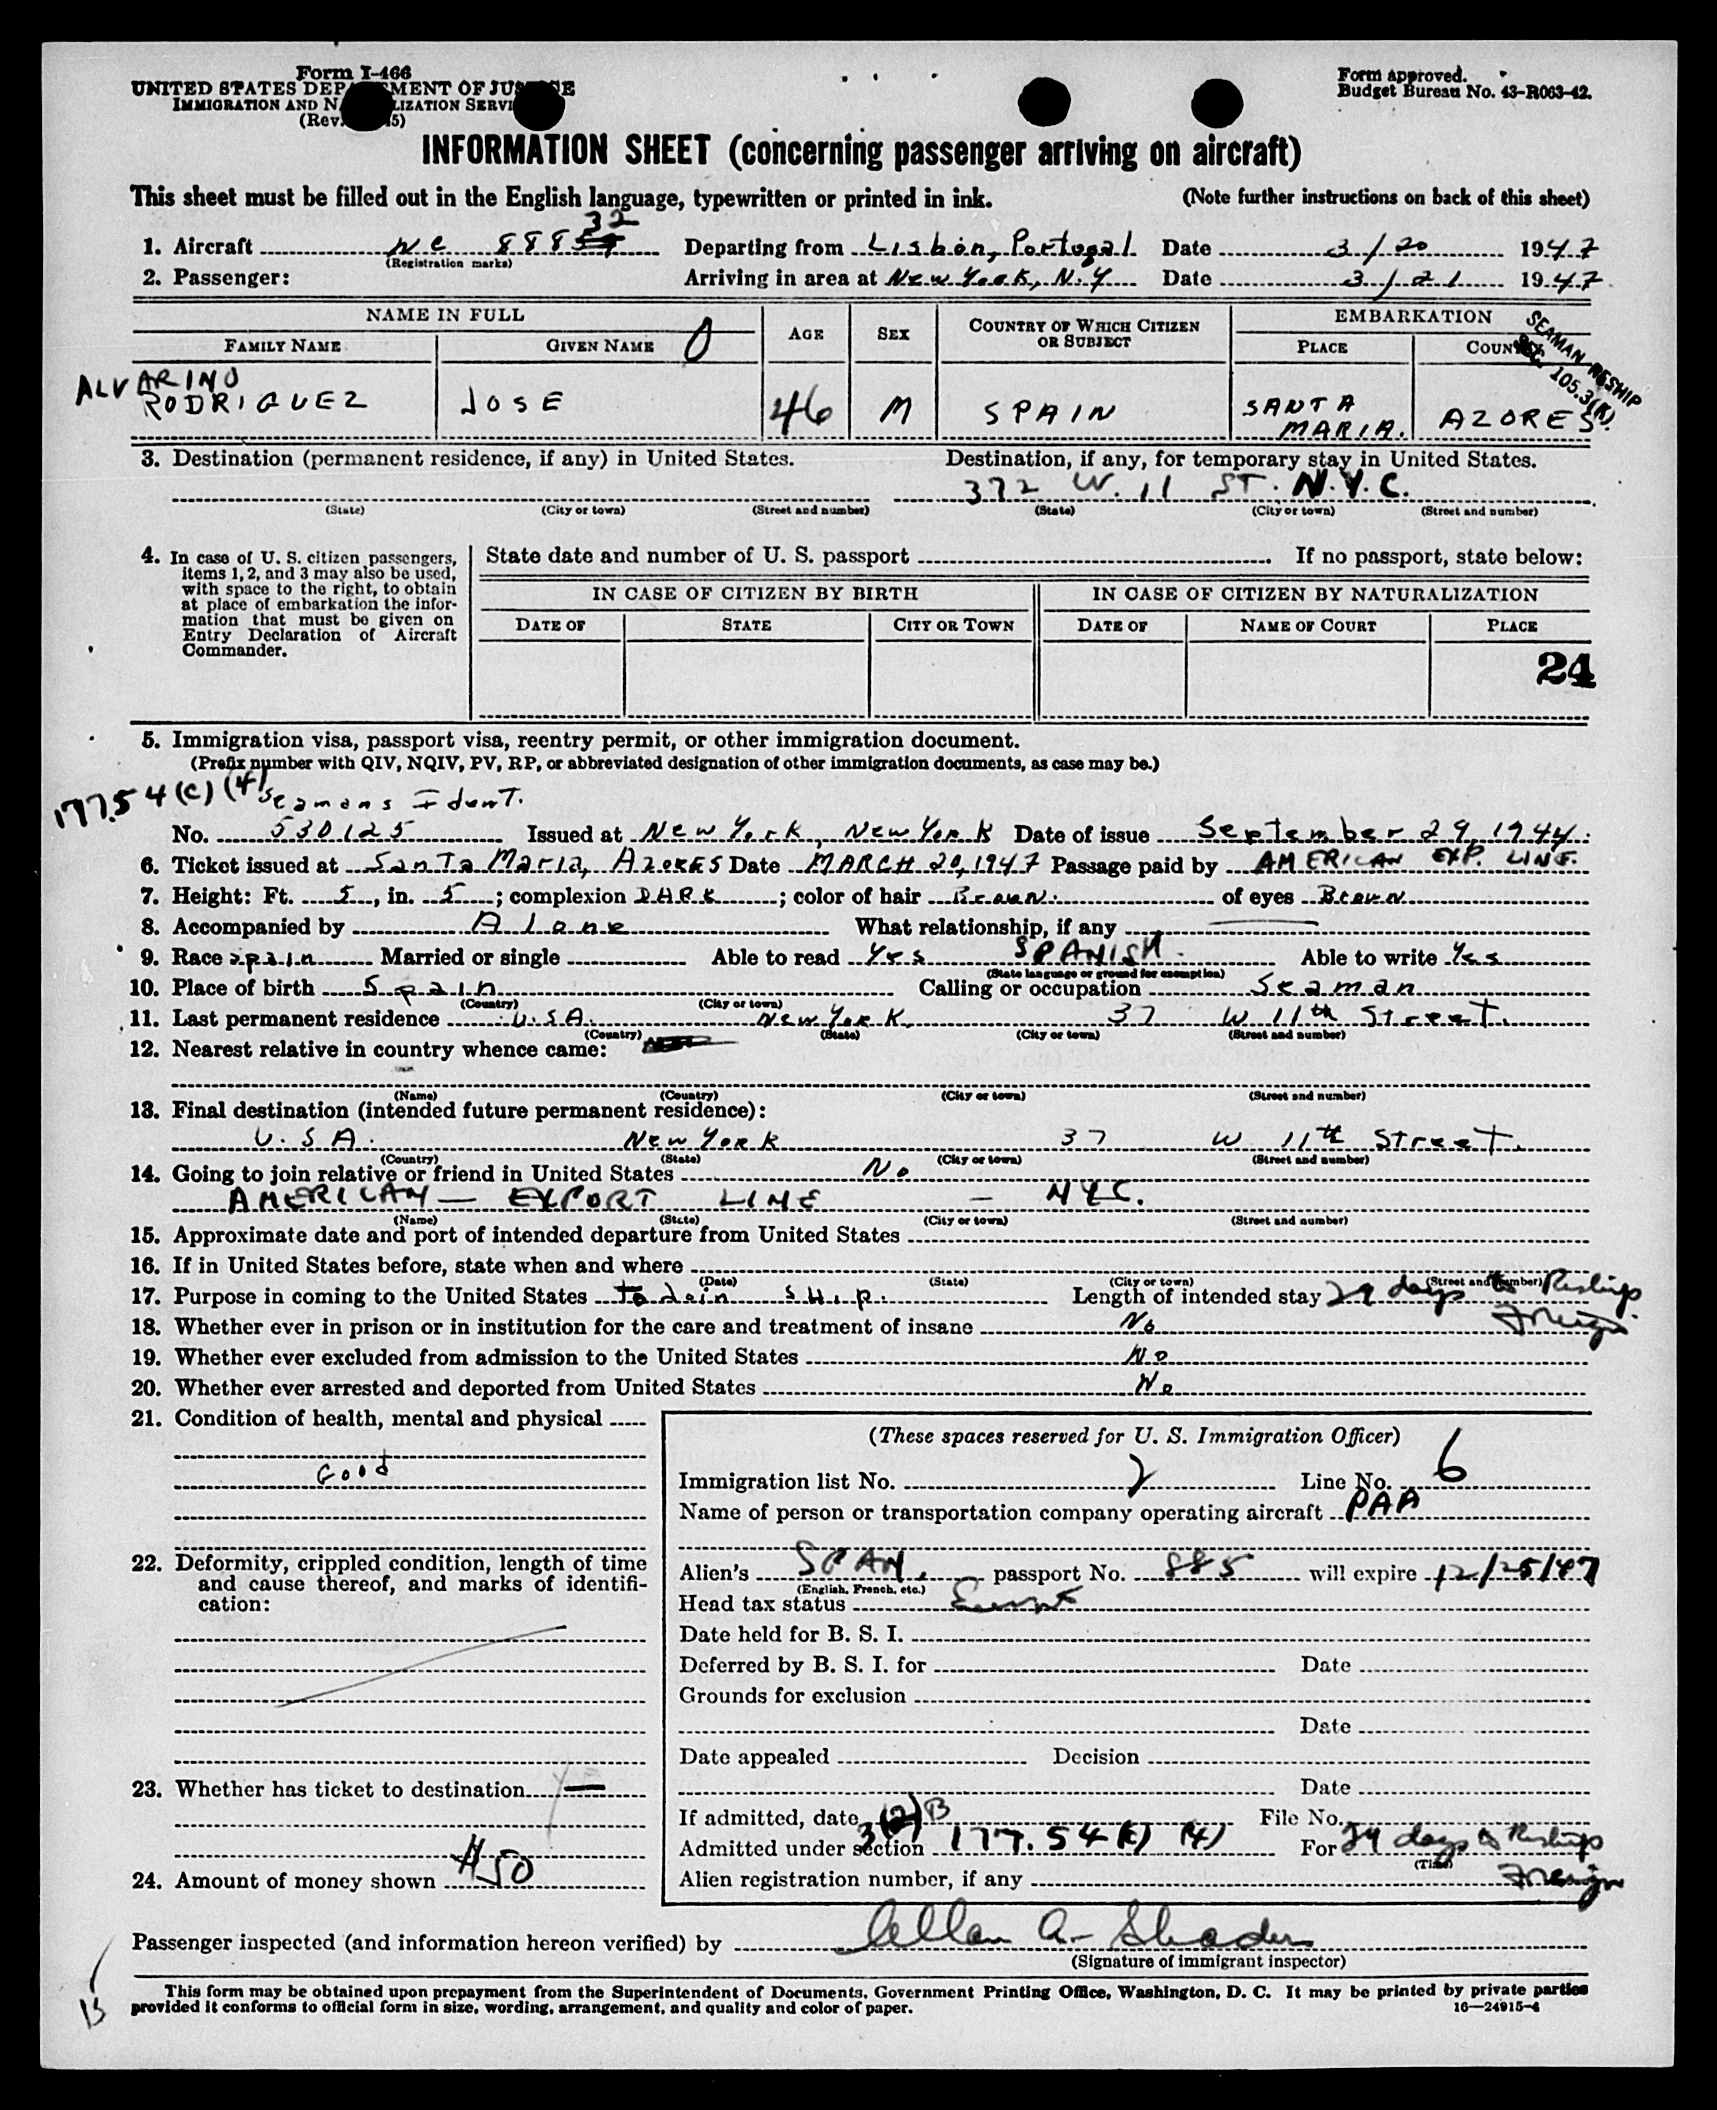 Form I-466
UNITED STATES DEPARTMENT OF JUSTICE
IMMIGRATION AND NATURALIZATION SERVICE
(Rev. 5)
Form approved.
Budget Bureau No. 43-R063-42.
INFORMATION SHEET (concerning passenger arriving on aircraft)
This sheet must be filled out in the English language, typewritten or printed in ink. (Note further instructions on back of this sheet)
32
1. Aircraft NC 888 Departing from Lisbon, Portugal Date 3/20 1947
(Registration marks)
2. Passenger: Arriving in area at New York, N.Y Date 3/21 1947
NAME IN FULL AGE SEX COUNTRY OF WHICH CITIZEN OR SUBJECT EMBARKATION
FAMILY NAME GIVEN NAME O PLACE COUNTRY
SEAMAN RESHIP
SEC. 105.3(K).
ALVARINO
RODRIGUEZ JOSE 46 M SPAIN SANTA MARIA. AZORES
3. Destination (permanent residence, if any) in United States. Destination, if any, for temporary stay in United States.
372 W. 11 ST. N.Y.C.
(State) (City or town) (Street and number) (State) (City or town) (Street and number)
4. In case of U. S. citizen passengers, items 1, 2, and 3 may also be used, with space to the right, to obtain at place of embarkation the information that must be given on Entry Declaration of Aircraft Commander.
State date and number of U. S. passport If no passport, state below:
IN CASE OF CITIZEN BY BIRTH IN CASE OF CITIZEN BY NATURALIZATION
DATE OF STATE CITY OR TOWN DATE OF NAME OF COURT PLACE
24
5. Immigration visa, passport visa, reentry permit, or other immigration document.
(Prefix number with QIV, NQIV, PV, RP, or abbreviated designation of other immigration documents, as case may be.)
177.54(c)(4) Seamans Ident.
No. 530125 Issued at New York, New York Date of issue September 29, 1944.
6. Ticket issued at Santa Maria, Azores Date MARCH 20, 1947 Passage paid by AMERICAN EXP. LINE.
7. Height: Ft. 5, in. 5; complexion DARK; color of hair Brown. of eyes Brown
8. Accompanied by Alone What relationship, if any
9. Race Spain Married or single Able to read Yes SPANISH. Able to write Yes
(State language or ground for exemption)
10. Place of birth Spain Calling or occupation Seaman
(Country) (City or town)
11. Last permanent residence U.S.A. New York. 37 W 11th Street.
(Country) (State) (City or town) (Street and number)
12. Nearest relative in country whence came:
(Name) (Country) (City or town) (Street and number)
13. Final destination (intended future permanent residence):
U.S.A. New York 37 W 11th Street.
(Country) (State) (City or town) (Street and number)
14. Going to join relative or friend in United States No
AMERICAN — EXPORT LINE — NYC.
(Name) (State) (City or town) (Street and number)
15. Approximate date and port of intended departure from United States
16. If in United States before, state when and where
(Date) (State) (City or town) (Street and number)
17. Purpose in coming to the United States to Join SHip. Length of intended stay 29 days to Reship
Foreign
18. Whether ever in prison or in institution for the care and treatment of insane No
19. Whether ever excluded from admission to the United States No
20. Whether ever arrested and deported from United States No
21. Condition of health, mental and physical
Good
(These spaces reserved for U. S. Immigration Officer)
Immigration list No. 2 Line No. 6
Name of person or transportation company operating aircraft PAA
22. Deformity, crippled condition, length of time and cause thereof, and marks of identification:
Alien's SPAN. passport No. 885 will expire 12/25/47
(English, French, etc.)
Head tax status Exempt
Date held for B. S. I.
Deferred by B. S. I. for Date
Grounds for exclusion
Date
Date appealed Decision
23. Whether has ticket to destination
Date
If admitted, date File No.
3(2) B
Admitted under section 177.54(c)(4) For 29 days to Reship
(Time)
Foreign
24. Amount of money shown $50
Alien registration number, if any
Passenger inspected (and information hereon verified) by Allan A. Shader
(Signature of immigrant inspector)
This form may be obtained upon prepayment from the Superintendent of Documents, Government Printing Office, Washington, D. C. It may be printed by private parties
provided it conforms to official form in size, wording, arrangement, and quality and color of paper. 16—24915-4